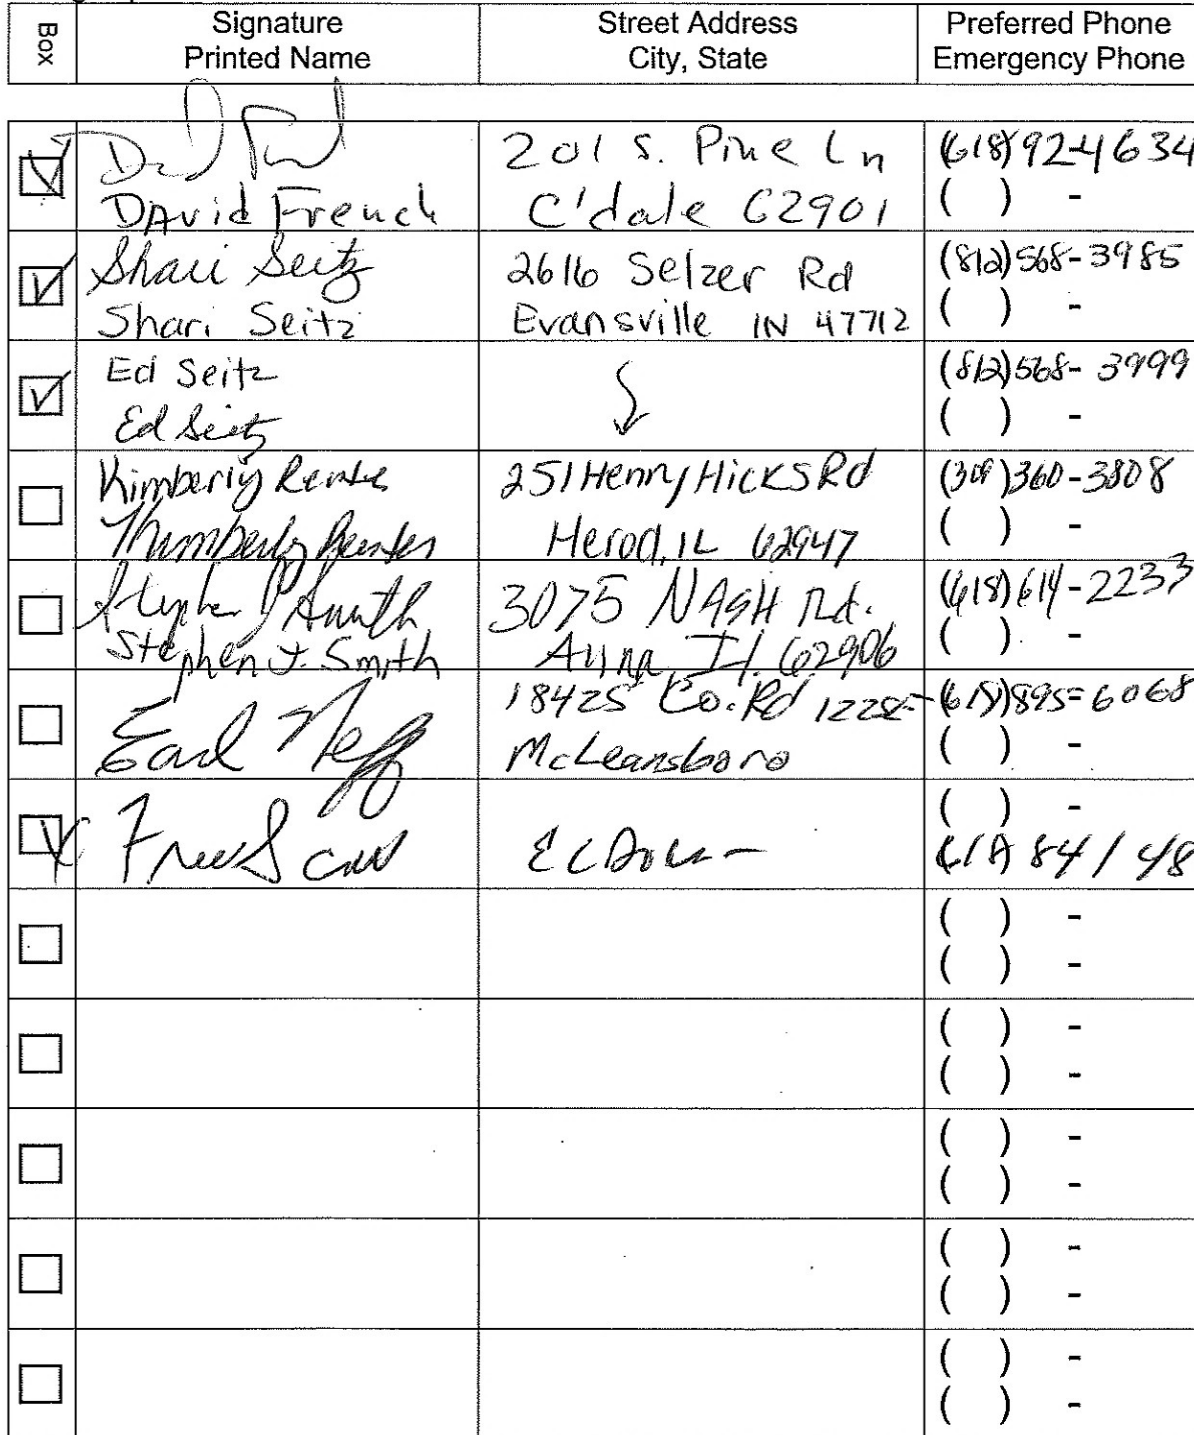 Box
Signature
Printed Name
Street Address
City, State
Preferred Phone
Emergency Phone
David French
201 S. Pine Ln
C'dale 62901
(618) 924634
( ) -
Shari Seitz
Shari Seitz
2616 Selzer Rd
Evansville IN 47712
(812) 568-3985
( ) -
Ed Seitz
Ed Seitz
(812) 568-3999
( ) -
Kimberly
Kimberly
251 Henny Hicks Rd
Herod, IL 62947
(309) 360-3808
( ) -
Stephen J Smith
Stephen J. Smith
3075 NASH Rd.
Anna Il. 62906
(618) 614-2233
( ) -
Earl Neff
18425 Co. Rd
McLeansboro
(618) 895-6068
( ) -
( ) -
( ) -
( ) -
( ) -
( ) -
( ) -
( ) -
( ) -
( ) -
( ) -
( ) -